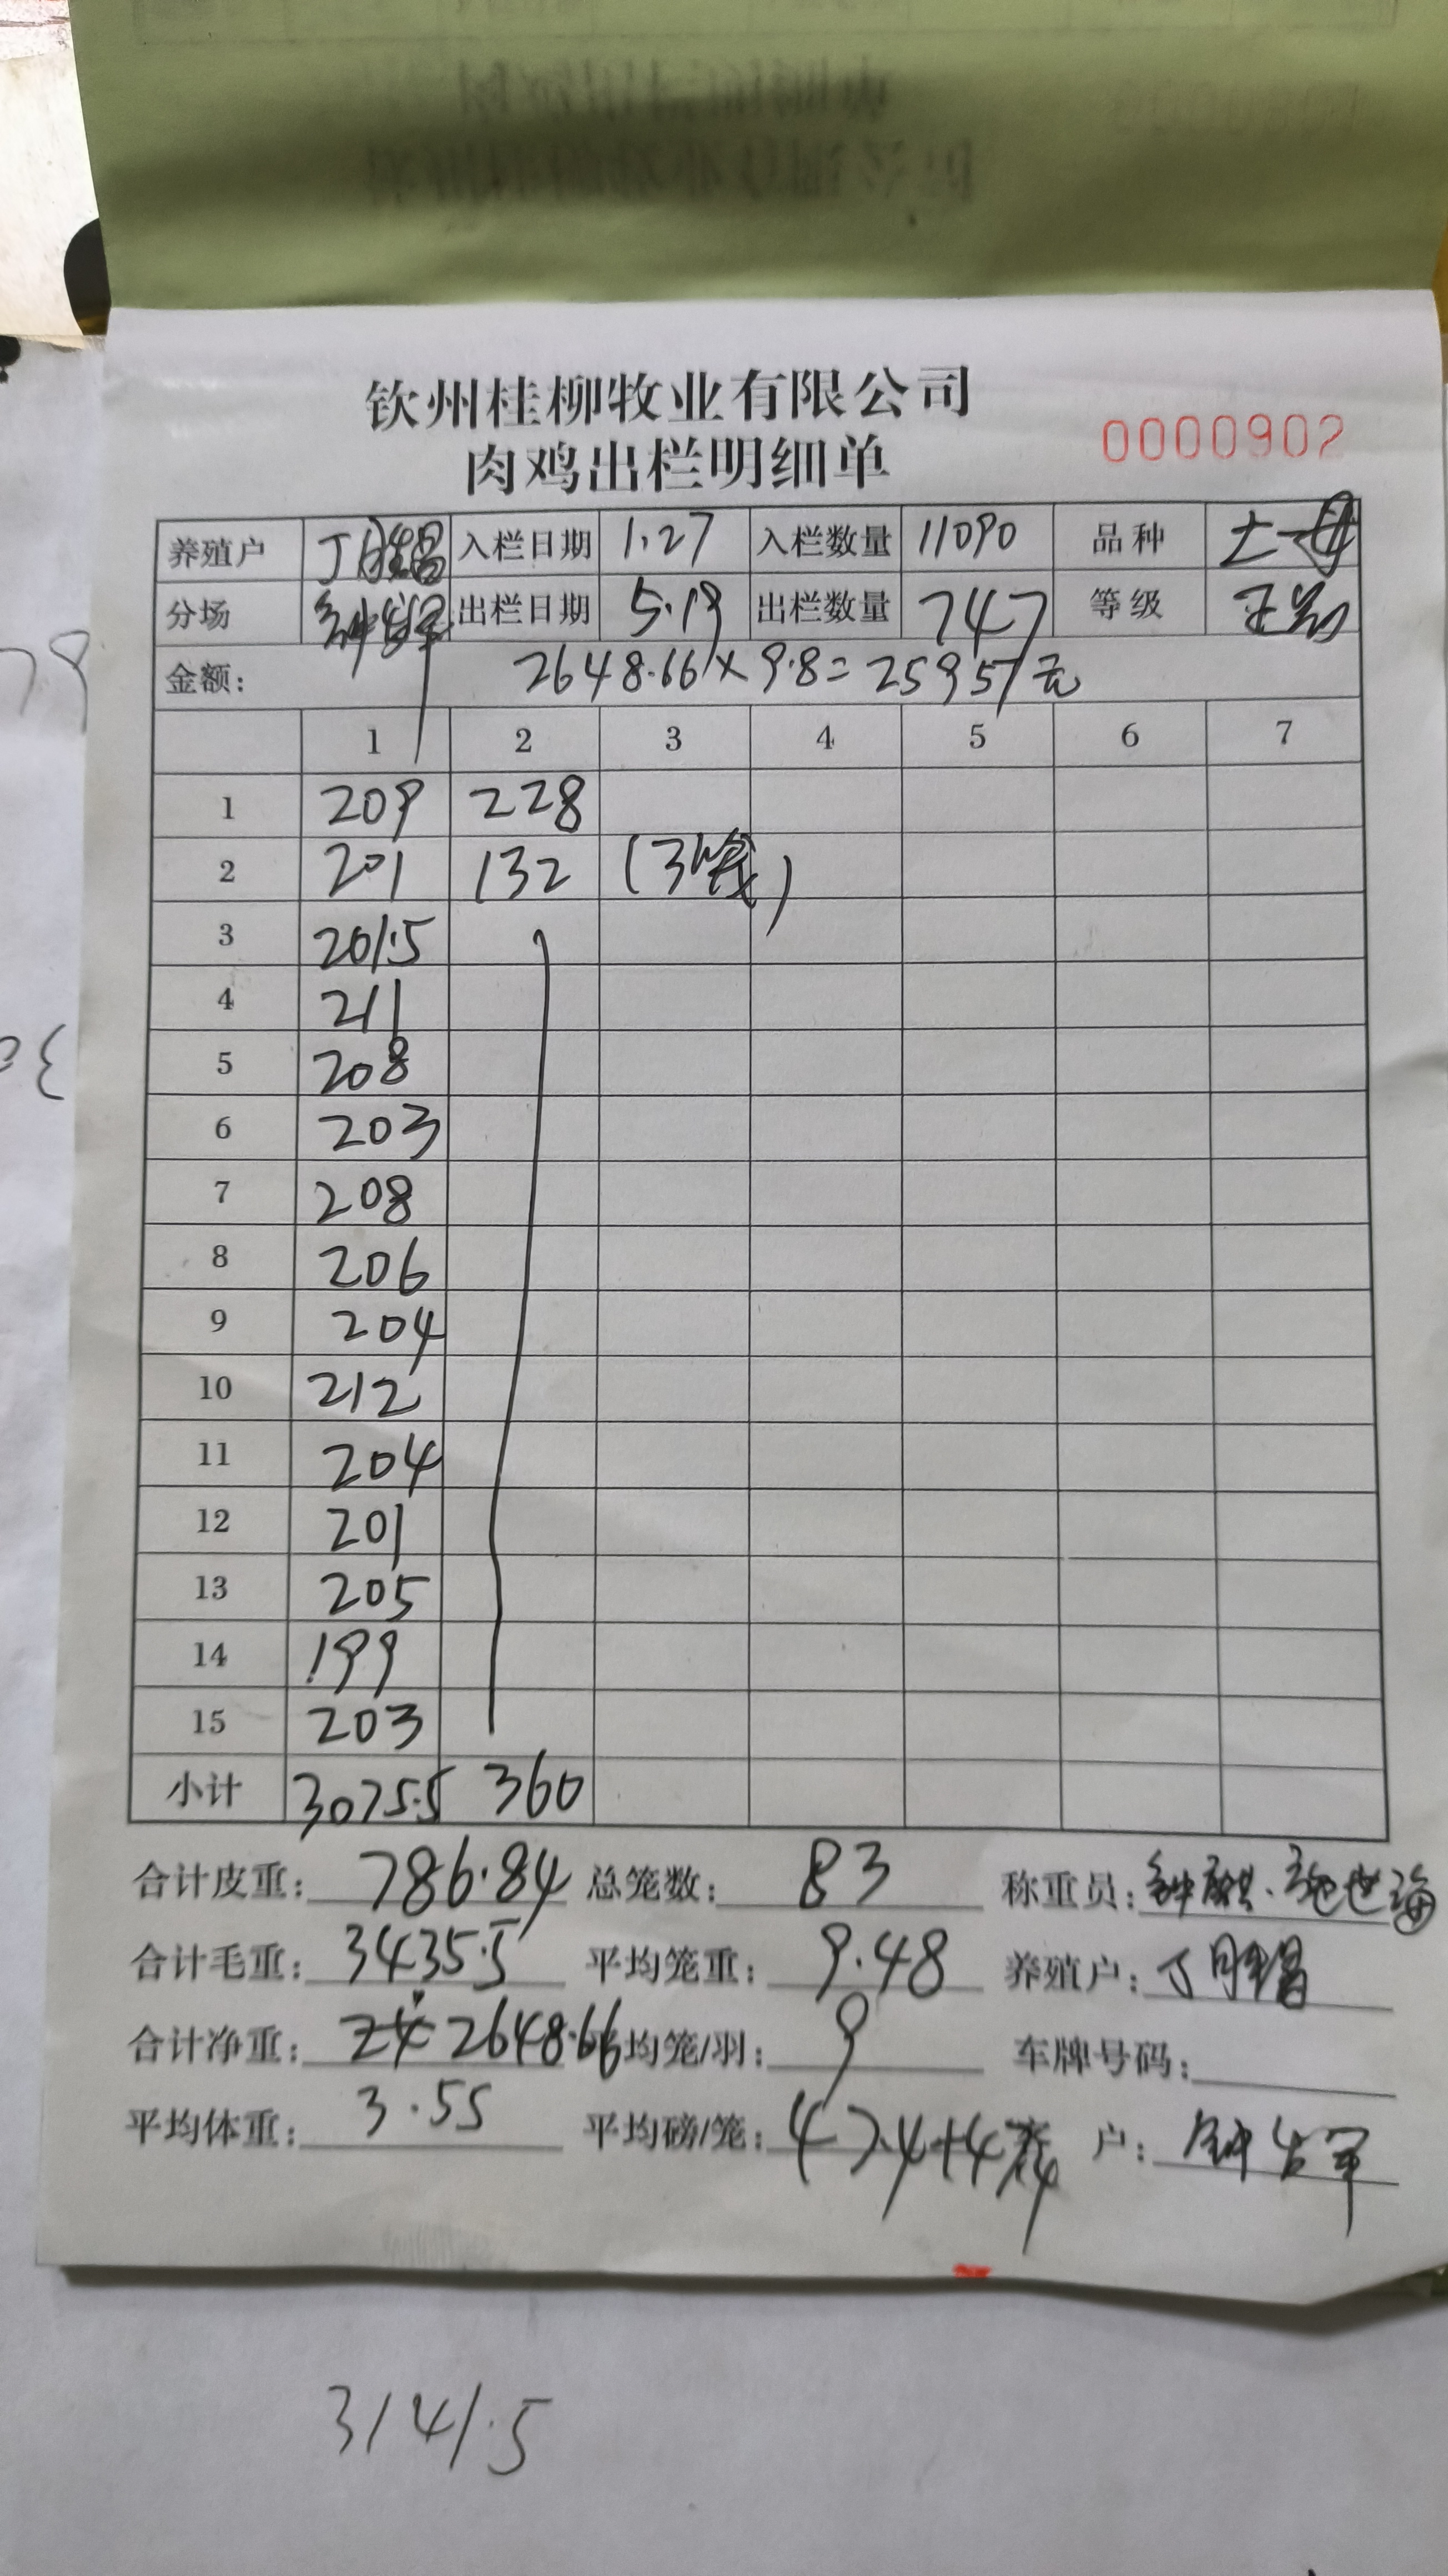 钦州桂柳牧业有限公司
肉鸡出栏明细单
0000902
养殖户 丁胜昌 入栏日期 1.27 入栏数量 11090 品种 土一母
分场 出栏日期 5.19 出栏数量 747 等级 正常
金额: 2648.66×9.8=25957元
1 2 3 4 5 6 7
1 209 228
2 201 132 (3笼)
3 201.5
4 211
5 208
6 203
7 208
8 206
9 204
10 212
11 204
12 201
13 205
14 199
15 203
小计 3075.5 360
合计皮重: 786.84 总笼数: 83 称重员:
合计毛重: 3435.5 平均笼重: 9.48 养殖户: 丁胜昌
合计净重: 2648.66 均笼/羽: 9 车牌号码:
平均体重: 3.55 平均磅/笼: 4 户:
3141.5